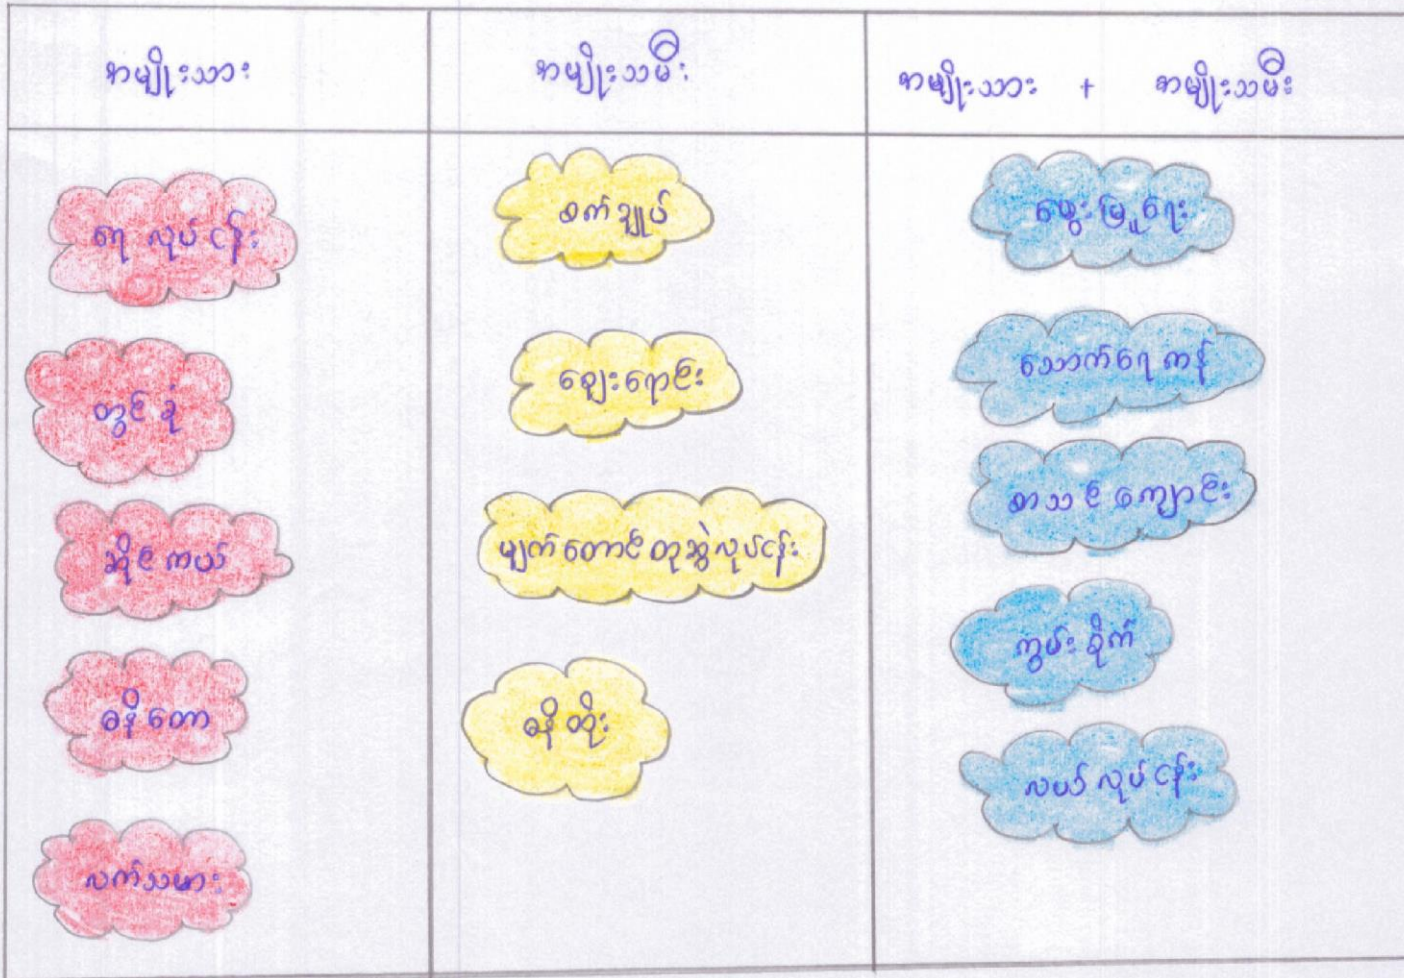 အမျိုးသား
အမျိုးသမီး
အမျိုးသား + အမျိုးသမီး
ရေ လုပ် ငန်း
စက် ချုပ်
မွေး မြူ ရေး
တွင် ခုံ
ဈေး ရောင်း
သောက် ရေ ကန်
ဆိုင် ကယ်
မျက် တောင် တု ဆွဲ လုပ် ငန်း
စာ သင် ကျောင်း
ဓနိ တော
ဓနိ ထိုး
ကွမ်း ခိုက်
လက်သမား
လယ် လုပ် ငန်း